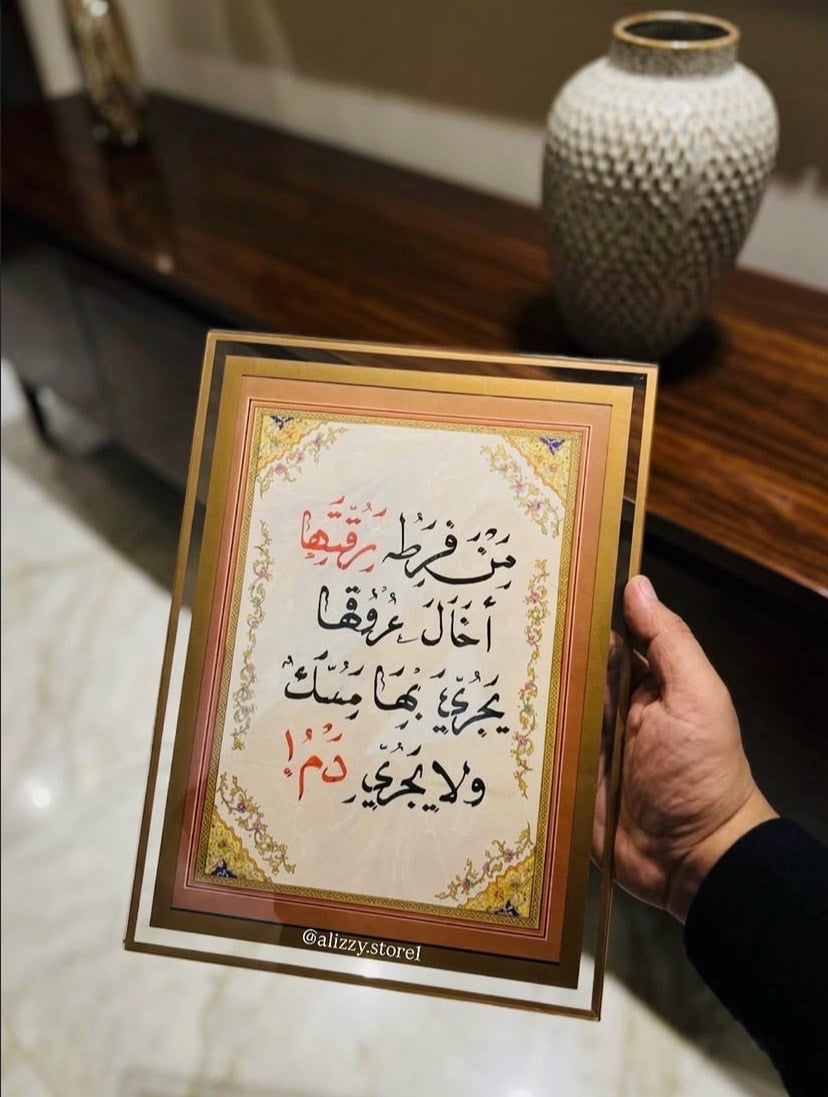 مِنْ فَرطِ رقَّتِها
أَخَالَ عُرُوْقَها
يَجرِيْ بِهَا مِسْكٌ
ولا يَجْرِيْ دَمُ!
@alizzy.store1